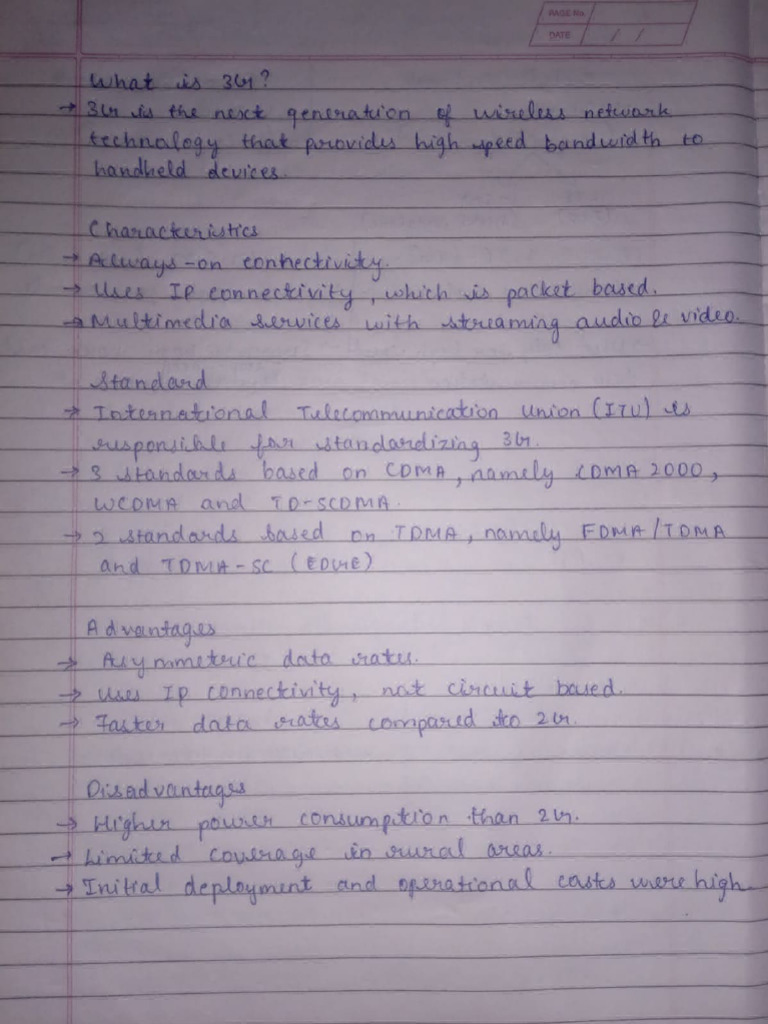 PAGE No.
DATE / /
What is 3G?
→ 3G is the next generation of wireless network
technology that provides high speed bandwidth to
handheld devices.
Characteristics
→ Always-on connectivity.
→ Uses IP connectivity, which is packet based.
→ Multimedia services with streaming audio & video.
Standard
→ International Telecommunication Union (ITU) is
responsible for standardizing 3G.
→ 3 standards based on CDMA, namely CDMA 2000,
WCDMA and TD-SCDMA.
→ 2 standards based on TDMA, namely FDMA/TDMA
and TDMA-SC (EDGE)
Advantages
→ Asymmetric data rates.
→ Uses IP connectivity, not circuit based.
→ Faster data rates compared to 2G.
Disadvantages
→ Higher power consumption than 2G.
→ Limited coverage in rural areas.
→ Initial deployment and operational costs were high.